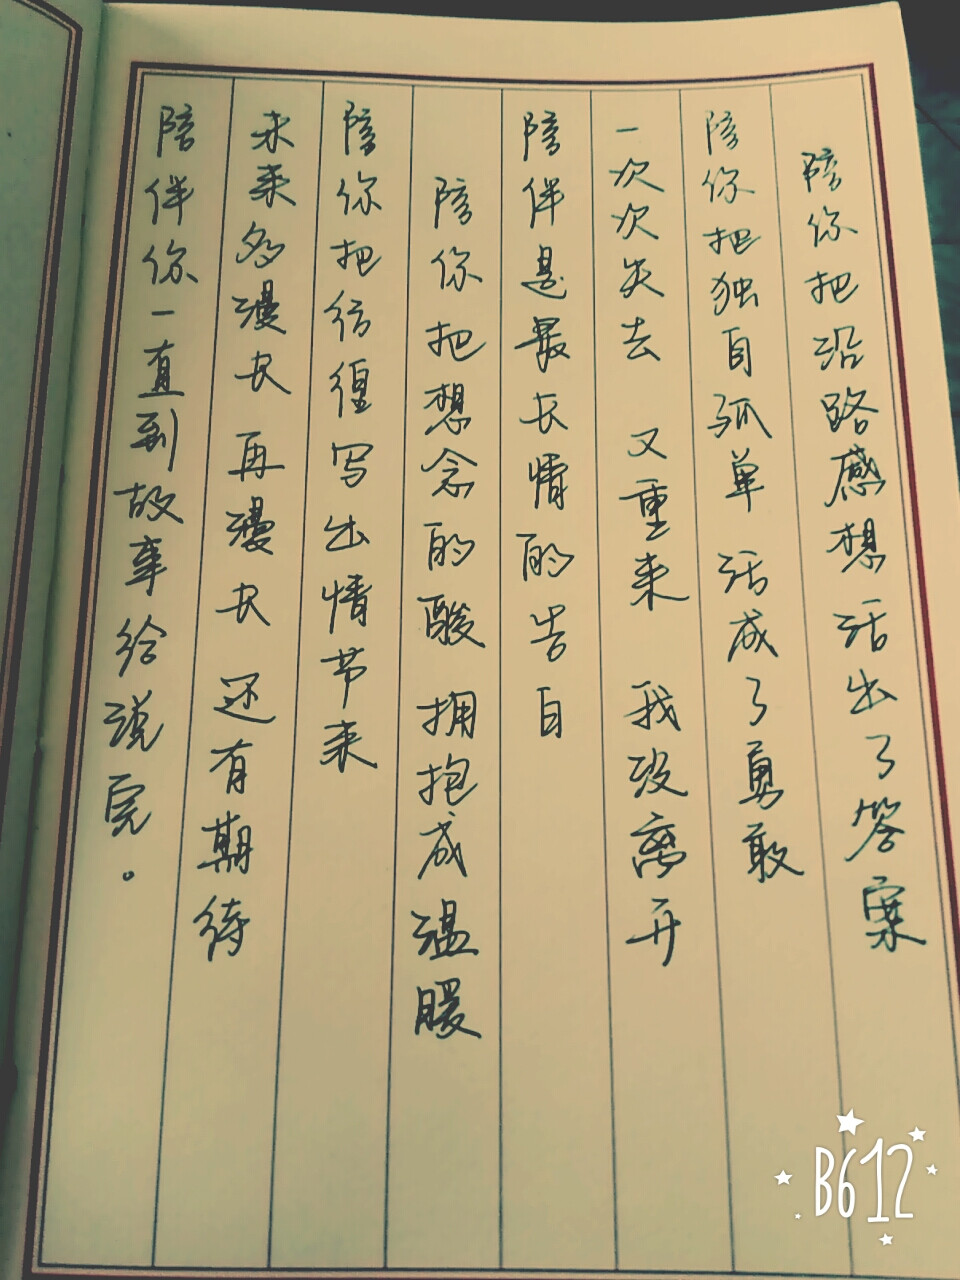 陪你把沿路感想活出了答案
陪你把独自孤单 活成了勇敢
一次次失去 又重来 我没离开
陪伴是最长情的告白
陪你把想念的酸 拥抱成温暖
陪你把彷徨写出情节来
未来多漫长 再漫长 还有期待
陪伴你一直到故事给说完。
B612